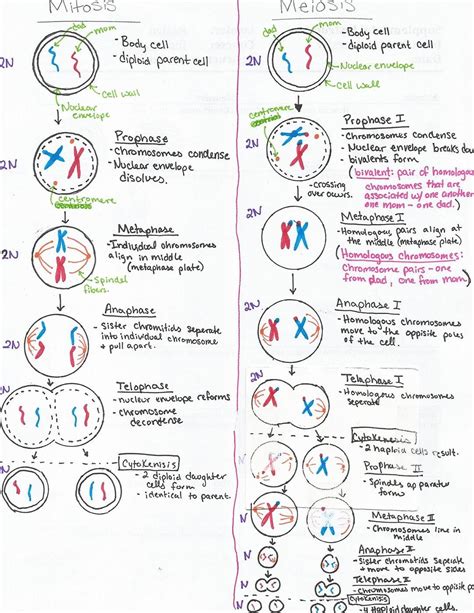 Mitosis
dad
mom
2N
- Body cell
- diploid parent cell
cell wall
Nuclear
envelope
2N
Prophase
- Chromosomes condense
- Nuclear envelope
disolves.
centromere
2N
Metaphase
- Individual chromosomes
align in middle
(metaphase plate)
Spindel
fibers.
2N
Anaphase
- Sister Chromitids seperate
into individual chromosome
+ pull apart.
Telophase
- nuclear envelope reforms
- chromosome
decondense
Cytokenisis
- 2 diploid daughter
cells form
- identical to parent.
N
N
Meiosis
dad
mom
2N
- Body cell
- diploid parent cell
Nuclear envelope
cell wall
centromere
2N
Prophase I
- Chromosomes condense
- Nuclear envelope breaks do
- bivalents form
(bivalent: pair of homologous
chromosomes that are
associated w/ one another
one mom - one dad.)
- crossing
over occurs.
2N
Metaphase I
- Homologous pairs align at
the middle (metaphase plate)
(Homologous chromosomes:
Chromosome pairs - one
from dad, one from mom)
2N
Anaphase I
- Homologous chromosomes
move to the opposite poles
of the cell.
2N
Telaphase I
- Homologous chromosomes
seperate
Cytokenisis
- 2 haploid cells result.
N
N
Prophase II
- Spindles apparatus
forms
N
N
Metaphase II
- Chromosomes line in
middle
Anaphase II
- Sister chromitids seperate
+ move to opposite sides
Telephase II
Cytokenisis
- 4 Haploid daughter cells